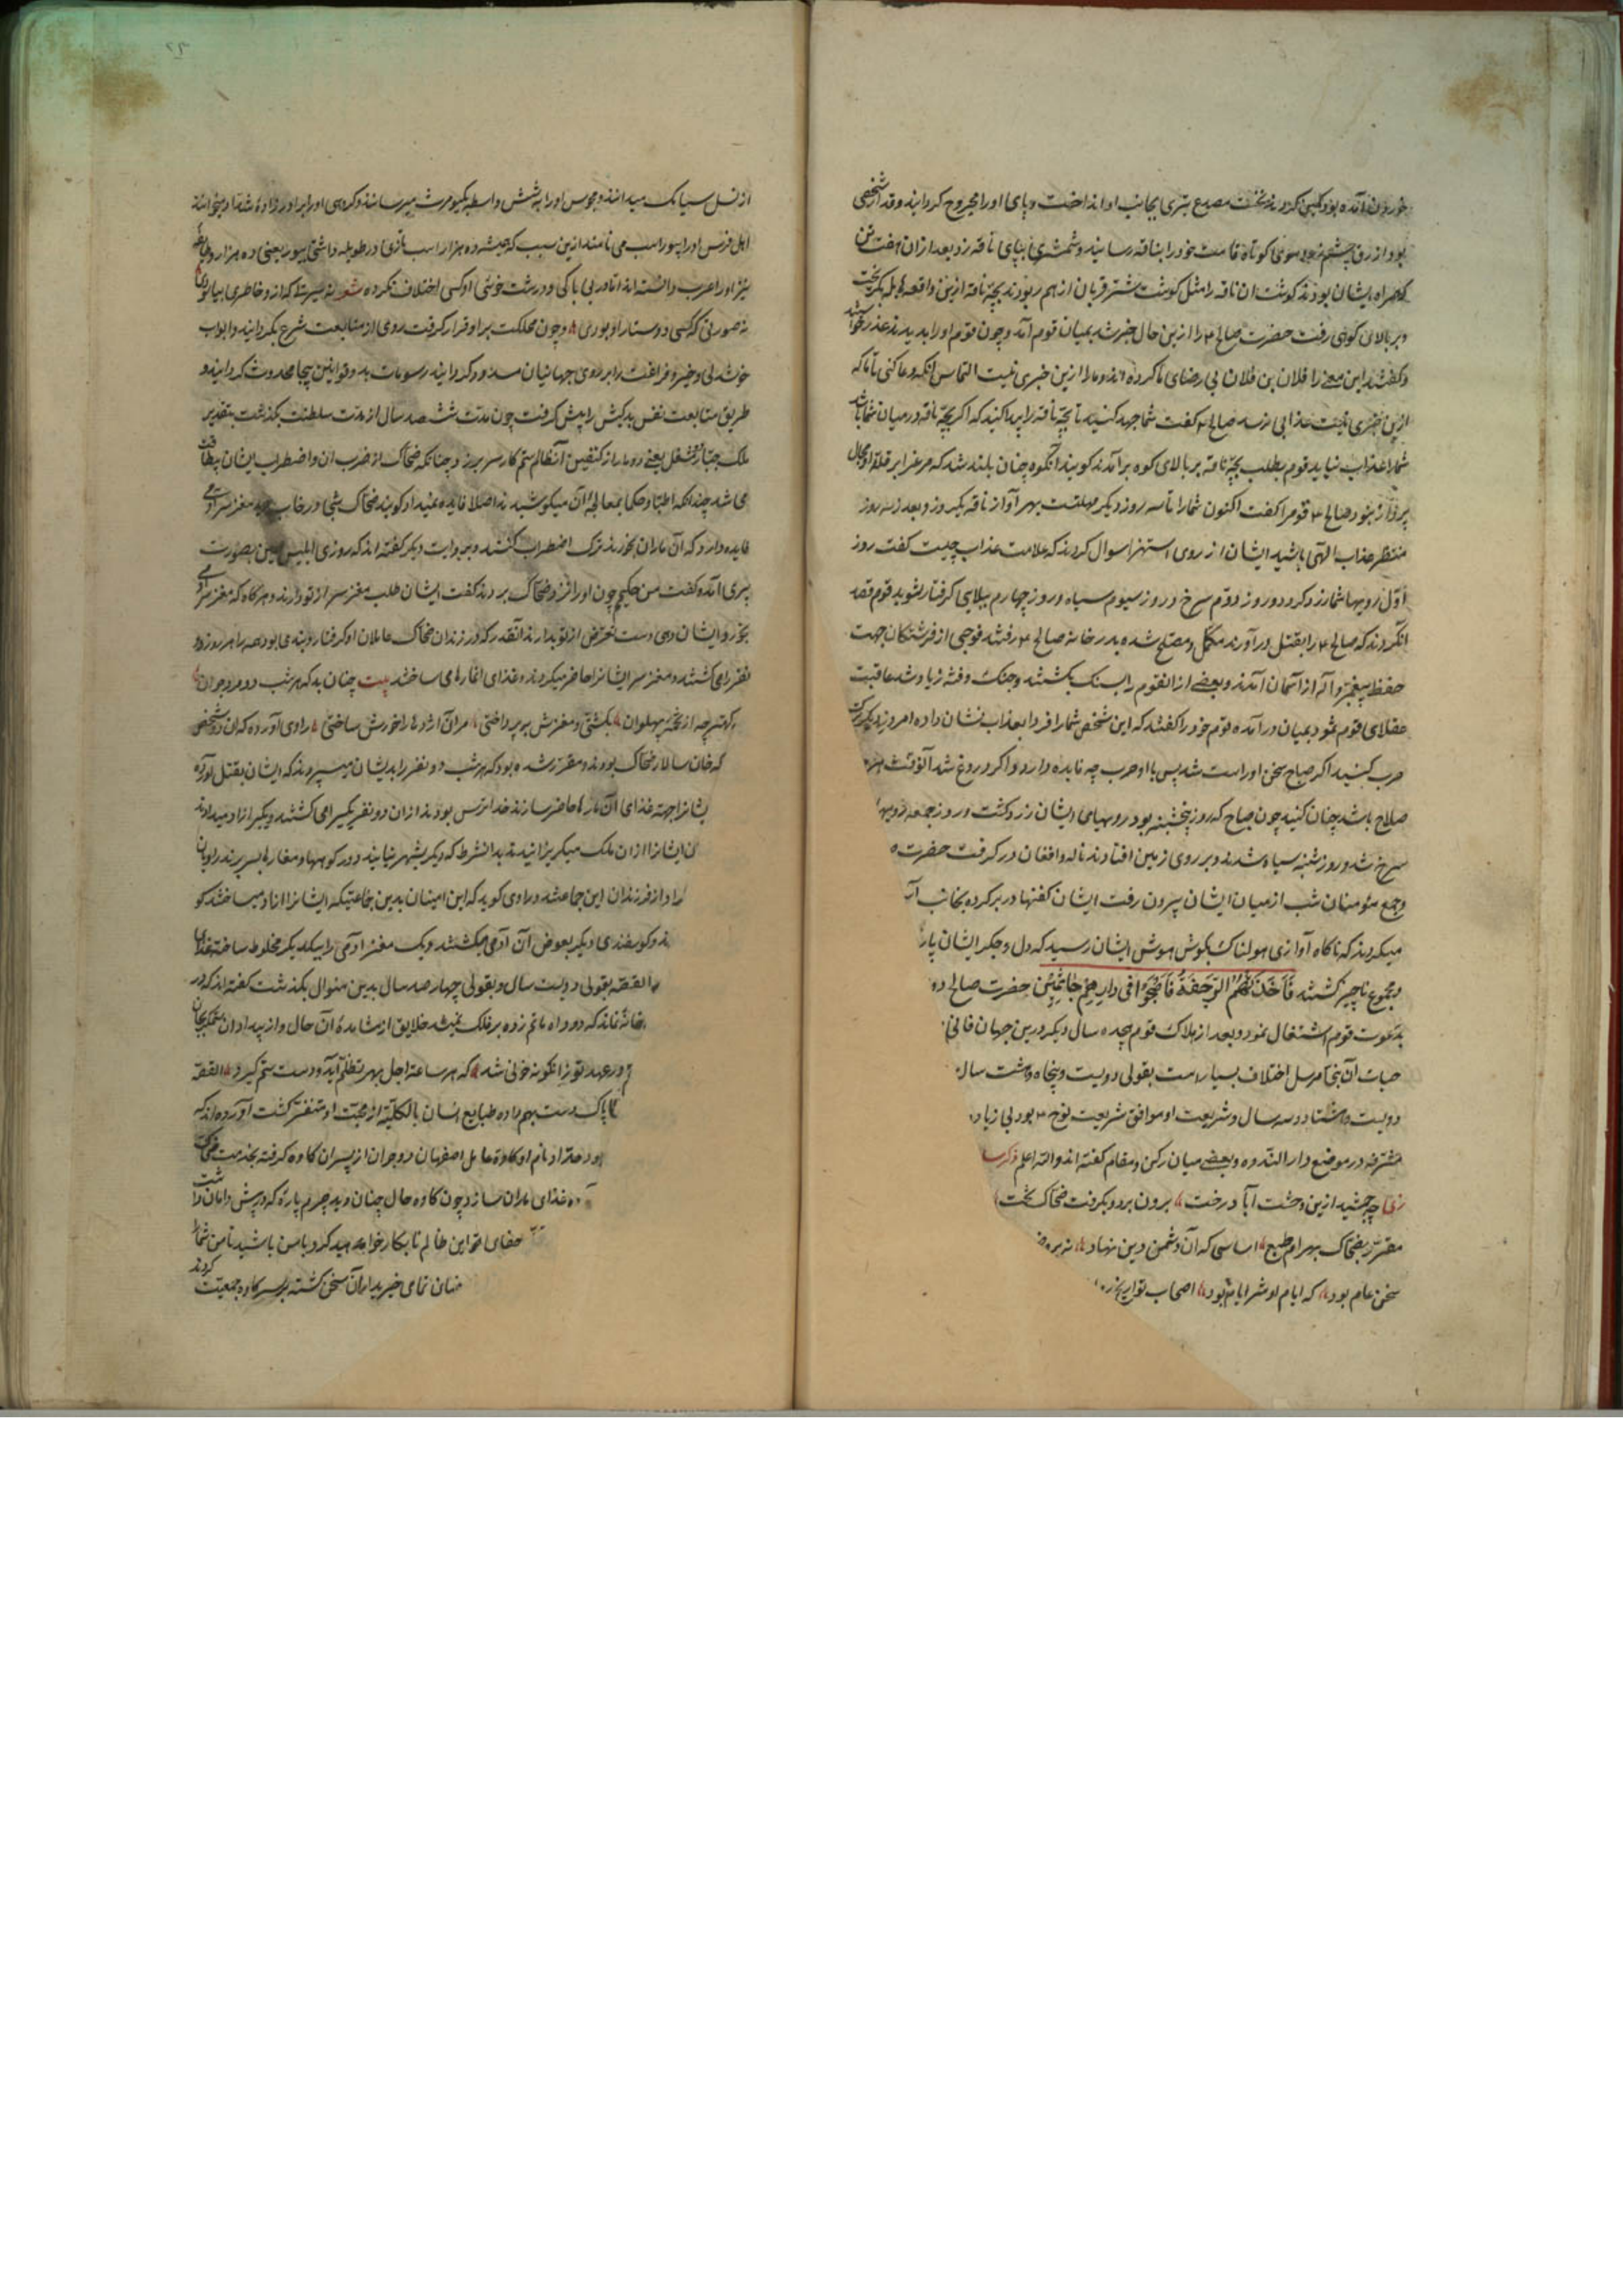 خوردن آمده بود کمین کردند نخست مصدع تیری بجانب او انداخت و پای او را مجروح گردانید و قدار شخصی
بود ازرق چشم سرخ موی کوتاه قامت خود را بناقه رسانید و شمشیری بپای ناقه زد بعد از ان هفت تن
که همراه ایشان بودند گوشت ان ناقه را مثل گوشت شتر قربان از هم ربودند بچه ناقه ازین واقعه هایله بگریخت
و بر بالای کوهی رفت حضرت صالح ۴ را ازین حال خبر شد بمیان قوم آمد و چون قوم او را بدیدند عذر خواستند
و گفتند این معنی را فلان بن فلان بی رضای ما کرده اند و ما را ازین خبری نیست التماس آنکه دعا کنی تا ما که
ازین خبری نیست عذابی نرسد صالح ۴ گفت شما جهد کنید تا بچه ناقه را پیدا کنید که اگر بچه ناقه در میان شما باشد
شما را عذاب نیاید قوم بطلب بچه ناقه بر بالای کوه برآمدند گویند آنکوه چنان بلند شد که مرغ را بر قله او مجال
پرواز نبود صالح ۴ قوم را گفت اکنون شما را تا سه روز دیگر مهلتست بهر آواز ناقه یکروز و بعد از سه روز
منتظر عذاب الهی باشید ایشان از روی استهزا سوال کردند که علامت عذاب چیست گفت روز
اول رویها شما زرد گردد و روز دوم سرخ و روز سیوم سیاه و روز چهارم ببلایی گرفتار شوید قوم قصد
آنکردند که صالح ۴ را بقتل درآورند مکمل و مصلح شده بدر خانه صالح ۴ رفتند فوجی از فرشتگان جهت
حفظ پیغمبر و آله از آسمان آمدند و بعضی از آنقوم را بسنگ بکشتند و جنگ و فتنه زیاد شد عاقبت
عقلای قوم ثمود بمیان درآمده قوم خود را گفتند که این شخص شما را فردا بعذاب نشان داده امروز دیگر ترک
حرب کنید اگر صباح سخن او راست شد پس با او حرب چه فایده دارد و اگر دروغ شد آنوقت هرچه
صلاح باشد چنان کنید چون صباح که روز پنجشنبه بود رویهای ایشان زرد گشت و روز جمعه رویها
سرخ شد و روز شنبه سیاه شدند و بر روی زمین افتادند ناله و افغان در گرفت حضرت
و جمع مؤمنان شب از میان ایشان بیرون رفت ایشان کفنها در بر کرده بجانب آ
میکردند که ناگاه آوازی هولناک بگوش هوش ایشان رسید که دل و جگر ایشان پار
و مجموع ناچیز گشتند فَأَخَذَتْهُمُ الرَّجْفَةُ فَأَصْبَحُوا فِی دَارِهِمْ جَاثِمِینَ حضرت صالح
بدعوت قوم اشتغال نمود و بعد از هلاک قوم هجده سال دیگر درین جهان فانی
حیات آن نبی مرسل اختلاف بسیار است بقولی دویست و پنجاه و هشت سال
دویست و هشتاد و سه سال و شریعت او موافق شریعت نوح ۴ بود بی زیاد
مشرفه در موضع دار الندوه و بعضی میان رکن و مقام گفته اند والله اعلم ذکر
چه جمشید ازین وحشت آباد رخت برون برد و بگرفت ضحاک تخت
مقرر بضحاک بهرام طبع اساسی که آن دشمن دین نهاد
سخن عام بود که ایام او شر ایام بود اصحاب تواریخ
از نسل سیامک میدانند و مجوس او را بشش واسطه بکیومرث میرسانند و گروهی او را برادرزاده شداد میخوانند
اهل فرس او را بیوراسب می نامند ازین سبب که همیشه ده هزار اسب تازی در طویله داشتی بیور یعنی ده هزار و طایفه
نیز او را عرب دانسته اند اما در بی باکی و درشت خوئی او کسی اختلاف نکرده شعر نه سیرتی که ازو خاطری بیاسودی
نه صورتی که کسی دوستار او بودی و چون مملکت بر او قرار گرفت روی از متابعت شرع بگردانید و ابواب
خوشدلی و خیر و فراغت را بر روی جهانیان مسدود گردانید رسومات بد و قوانین بیجا محدوث گردانید و
طریق متابعت نفس بدکیش را پیش گرفت چون مدت ششصد سال از مدت سلطنت بگذشت بتقدیر
ملک جبار دو شغل یعنی دو مار از کتفین آنظالم ستم کار سر برزد چنانکه ضحاک از ضرب ان و اضطراب ایشان بیطاقت
می شد چندانکه اطبا و حکما بمعالجه آن میکوشیدند اصلا فایده نمیداد گویند ضحاک شبی در خواب دید مغز سر آدمی
فایده دارد که آن ماران بخورند ترک اضطراب کنند و بروایت دیگر گفته اند که روزی ابلیس لعین بصورت
پیری آمده گفت من حکیم چون او را نزد ضحاک بردند گفت ایشان طلب مغز سر از تو دارند و هرگاه که مغز سر آدمی
بخورد ایشان دهی دست تعرض از تو بدارند آنقدر که در زندان ضحاک عاملان او گرفتار و بنده می بودند همه را هر روز دو
نفر را می کشتند و مغز سر ایشانرا حاضر میکردند و غذای آنمارهای ساختند بیت چنان بد که هر شب دو مرد جوان
کهتر چه از تخمه پهلوان بکشتی و مغزش بپرداختی مران اژدها را خورش ساختی راوی آورده که ان دو شخص
که خان سالار ضحاک بودند و مقرر شده بود که هر شب دو نفر را بدیشان میسپردند که ایشان بقتل آورده
ایشانرا جهة غذای آن مارها حاضر سازند خدا ترس بودند از ان دو نفر یکیرا می کشتند و یکیرا آزاد میدادند
ان ایشانرا از ان ملک میگریزانیدند بدانشرط که دیگر بشهر نیایند و در کوهها و مغارها بسر برند راویان
راد از فرزندان این جماعتند و راوی گوید که این امینان بدین جماعتیکه ایشانرا آزاد میساختند گو
ند و گوسفندی دیگر بعوض آن آدمی میکشتند و یک مغز آدمی را بیکدیگر مخلوط ساخته غذای
القصه بقولی دویست سال و بقولی چهارصد سال بدین منوال بگذشت گفته اند که در
خانه نماند که دود آه ماتم زده بر فلک نمیشد خلایق از مشاهده آن حال و از بیداد ان
در عهد تو زانگونه خونی شد که هر ساعت اجل بهر تظلم آید و دست ستم گیرد القصه
پاک دست بهم داده طبایع انسان بالکلیه از محبت او متنفر گشت آورده اند که
اود حداد نام او کاوه عامل اصفهان دو جوان از پسران کاوه گرفته بخدمت ضحاک
ده غذای ماران سازد چون کاوه حال چنان دید چرم پاره که در پیش دامان داشت
جفای این ظالم نابکار خواهید کرد با من باشید تا من شما را
خریداران سخن گشته بر سر کاوه جمعیت کردند